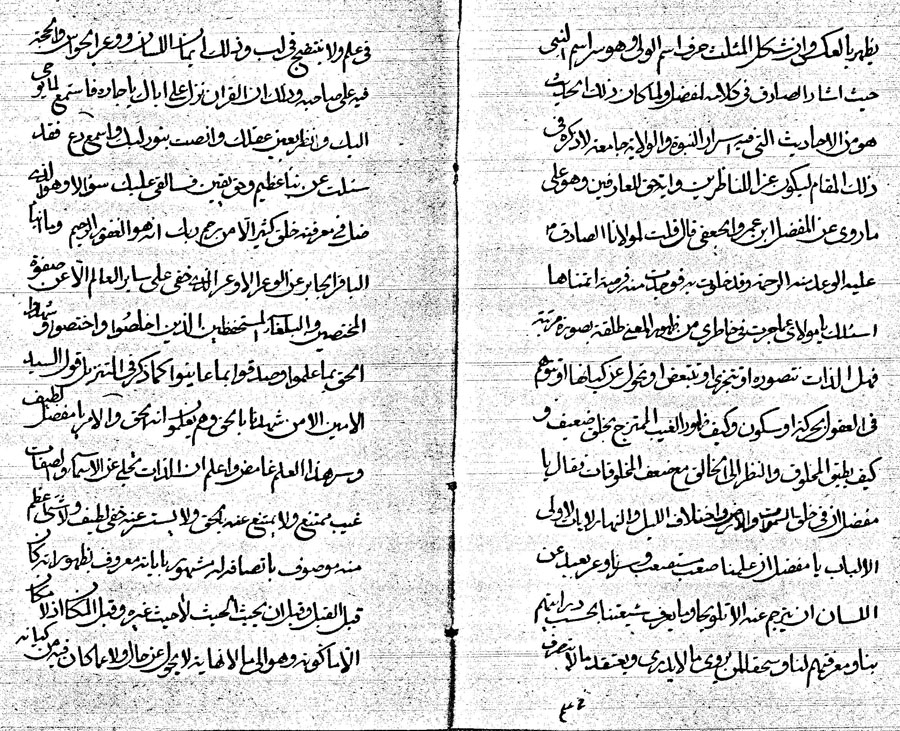 يظهر بالعكس وان شكل المثلث حرف اسم الولي وهو سر اسم النبي
حيث اشار الصادق في كلامه لمفضل ولما كان ذلك الحديث
هو من الاحاديث التي فيه اسرار النبوة والولاية جامعة لا ذكره في
ذلك المقام ليكون عزا للناظرين وايتحق للعارفين وهو على
ما روي عن المفضل ابن عمر والجعفي قال قلت لمولانا الصادق
عليه الوعد منه الرحمة وقد خلوت به فوجدت منه فرصة اتمناها
اسئلك يا مولاي عما جرت في خاطري من ظهور المعنى لخلقه بصورة مرئية
فهل الذات تتصور او تتجزى او تتبعض او تحول عن كيانها او تتوهم
في العقول بحركة او سكون وكيف ظهور الغيب الممتزج بخلق ضعيف و
كيف يطيق المخلوق النظر الى الخالق مع ضعف المخلوقات فقال يا
مفضل ان في خلق السموات والارض واختلاف الليل والنهار لايات لاولى
الالباب يا مفضل ان علمنا صعب مستصعب وسرنا وعر بعيد عن
اللسان ان يترجم عنه الا تلويحا وما يعرف شيعتنا بحسب درايتهم
بنا ومعرفتهم لنا وسحقا لمن يروي ما لا يدري ويعتقد ما لا يتصرف
في علم ولا يتضح في لب وذلك ايمان اللسان ووعر الحواس والحجة
فيه على صاحبه وذلك ان القران نزل على اياك يا جاره فاستمع لما يوحى
اليك وانظر بعين عقلك وانصت بنور لبك واسمع وع فقد
سئلت عن نبأ عظيم وحق يقين فسالقي عليك سؤالا وهو الذي
ضل في معرفته خلق كثير الا من رحم ربك انه هو الغفور الرحيم وما انبا
الباقر لجابر عن الوعر الاوعر الذي خفي على ساير العالم الا عن صفوة
المختصين والبلغاء المستحفظين الذين اخلصوا واختصوا وشهدوا
الحق بما علموا وصدقوا بما عاينوا كما ذكر في التنزيل قول السيد
الامين الا من شهد بالحق وهم يعلمون انه الحق والامر يا مفضل لطيف
وسر هذا العلم غامض واعلم ان الذات تجلى عن الاسماء والصفات
غيب ممتنع ولا يمتنع عنه الحق ولا يستر عنه خفي لطيف ولا شئ اعظم
منه موصوف باتصافه له مشهور باياته معروف بظهوراته كان
قبل القبل وقبل ان يحيث الحيث لا حيث غيره وقبل المكان اذ لا مكان
الا ما كونه وهو الى ما لا نهاية لا يحول عن حال ولا عما كان فيه من كيانه